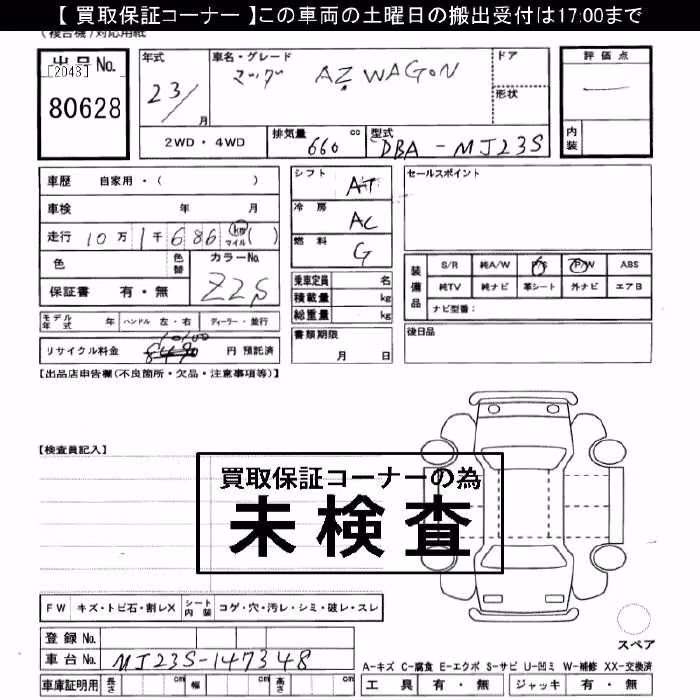 【 買取保証コーナー 】この車両の土曜日の搬出受付は17:00まで
(複合機)対応用紙
出品No.
[2043]
80628
年式
23/
月
車名・グレード
マツダ AZ WAGON
ドア
形状
評価点
内装
2WD・4WD
排気量 660 cc
型式 DBA-MJ23S
車歴 自家用・( )
車検 年 月
走行 10万1千686 km マイル( )
色
色替
カラーNo. Z2S
保証書 有・無
シフト AT
冷房 AC
燃料 G
乗車定員 名
積載量 kg
総重量 kg
書類期限
月 日
セールスポイント
装備品
S/R 純A/W P/S P/W ABS
純TV 純ナビ 革シート 外ナビ エアB
ナビ型番:
後日品
モデル年式 年 ハンドル 左・右 ディーラー・並行
リサイクル料金 円 預託済
【出品店申告欄(不良箇所・欠品・注意事項等)】
【検査員記入】
買取保証コーナーの為
未検査
FW キズ・トビ石・割レX シート内装 コゲ・穴・汚レ・シミ・破レ・スレ
登録No.
車台No. MJ23S-147348
車庫証明用 長さ cm 幅 cm 高さ cm
スペア
A-キズ C-腐食 E-エクボ S-サビ U-凹ミ W-補修 XX-交換済
工具 有・無 ジャッキ 有・無